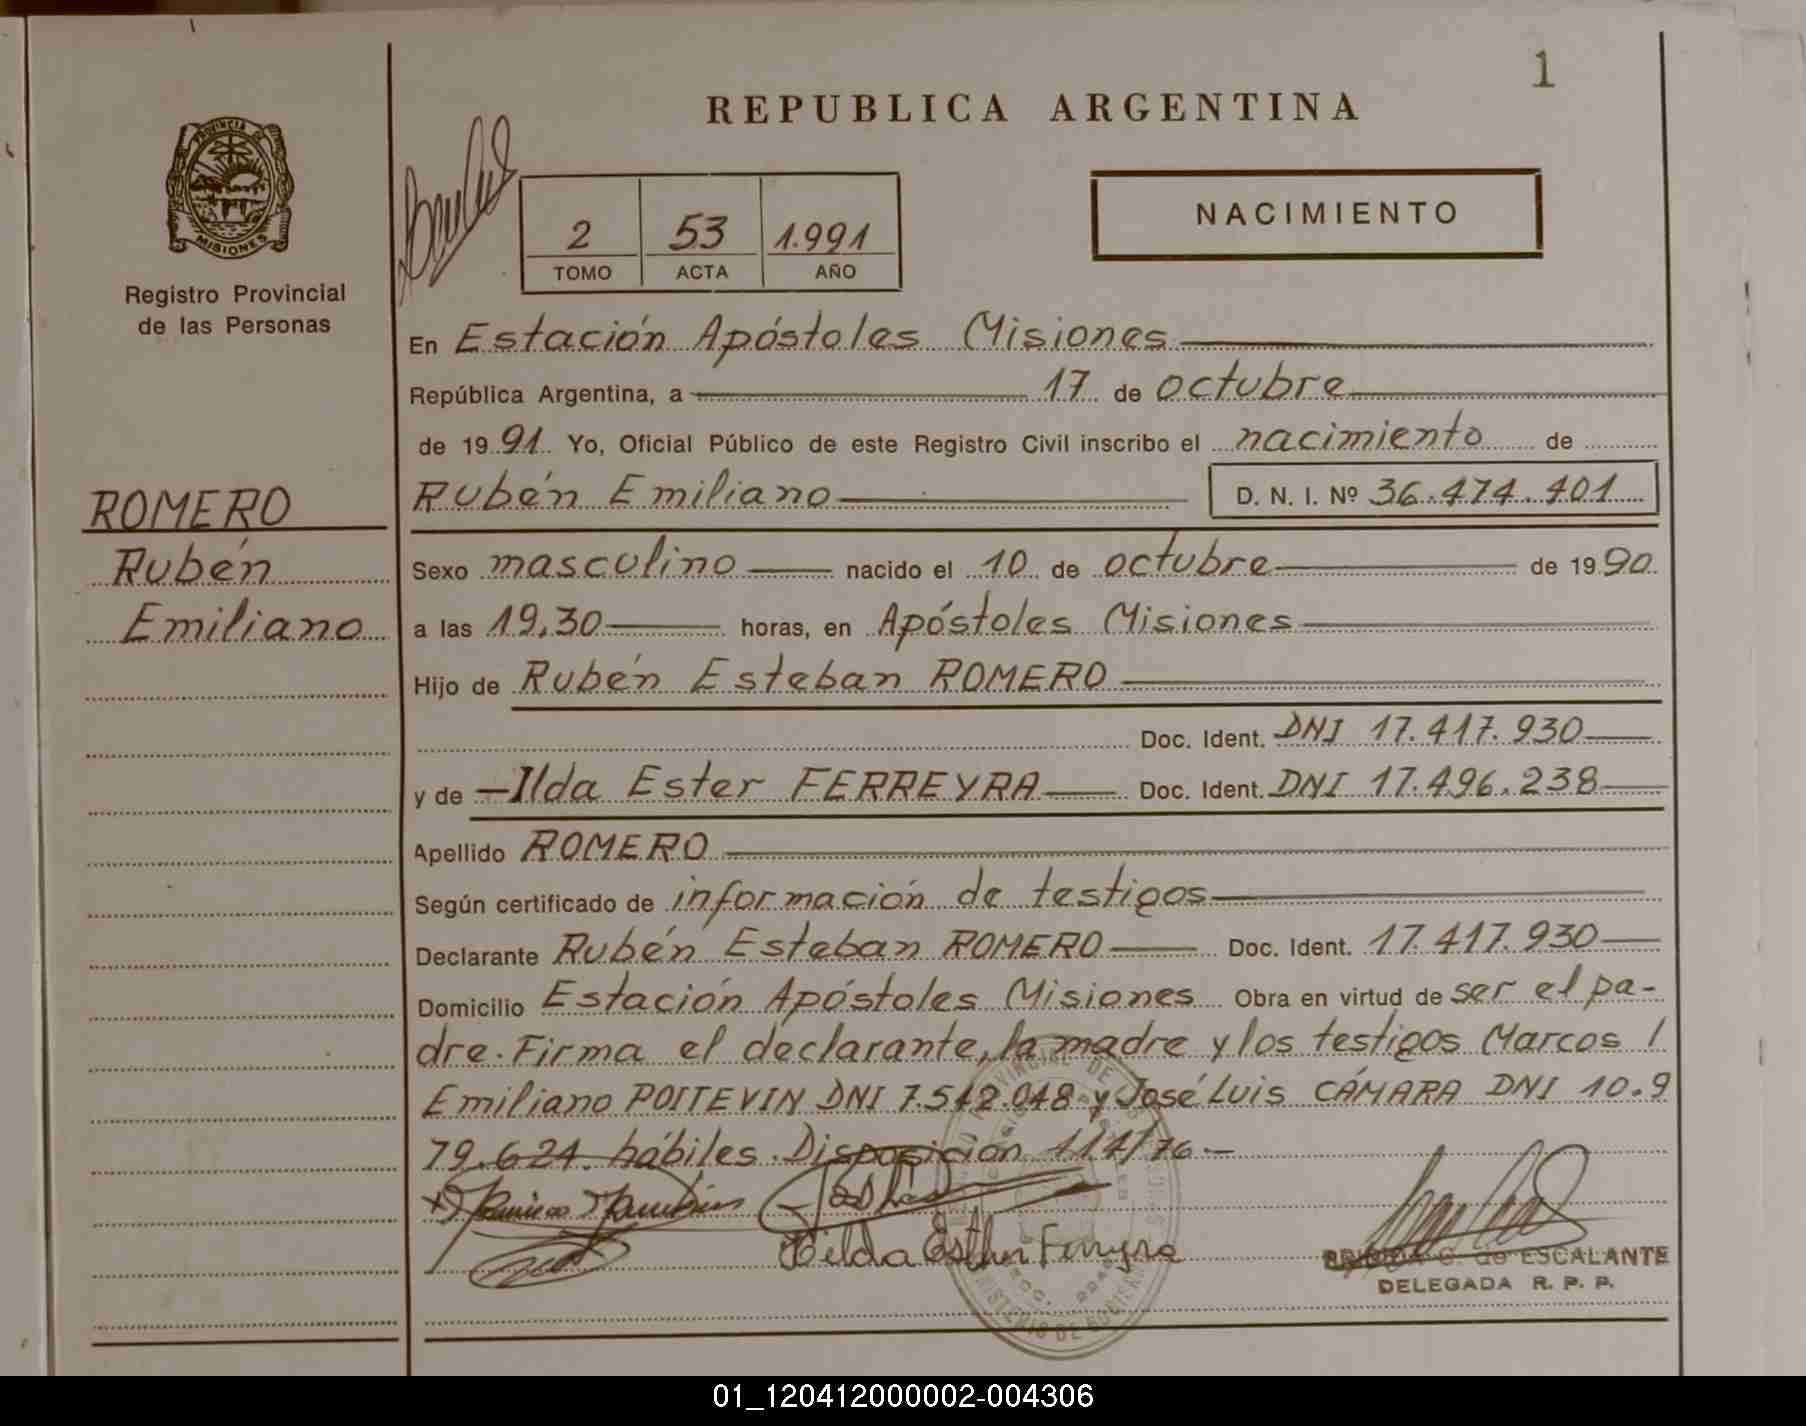 1
REPUBLICA ARGENTINA
PROVINCIA DE
MISIONES
Registro Provincial
de las Personas
2 53 1.991
TOMO ACTA AÑO
NACIMIENTO
En Estación Apóstoles Misiones
República Argentina, a 17 de octubre
de 1991 Yo, Oficial Público de este Registro Civil inscribo el nacimiento de
Rubén Emiliano D. N. I. Nº 36.474.401
ROMERO
Rubén
Emiliano
Sexo masculino nacido el 10 de octubre de 1990
a las 19,30 horas, en Apóstoles Misiones
Hijo de Rubén Esteban ROMERO
Doc. Ident. DNI 17.417.930
y de Ilda Ester FERREYRA Doc. Ident. DNI 17.496.238
Apellido ROMERO
Según certificado de información de testigos
Declarante Rubén Esteban ROMERO Doc. Ident. 17.417.930
Domicilio Estación Apóstoles Misiones Obra en virtud de ser el pa-
dre. Firma el declarante, la madre y los testigos Marcos /
Emiliano POITEVIN DNI 7.542.048 y José Luis CÁMARA DNI 10.9
79.624. hábiles. Disposición 114/76.-
Hilda Esther Ferreyra
C. de ESCALANTE
DELEGADA R. P. P.
01_120412000002-004306